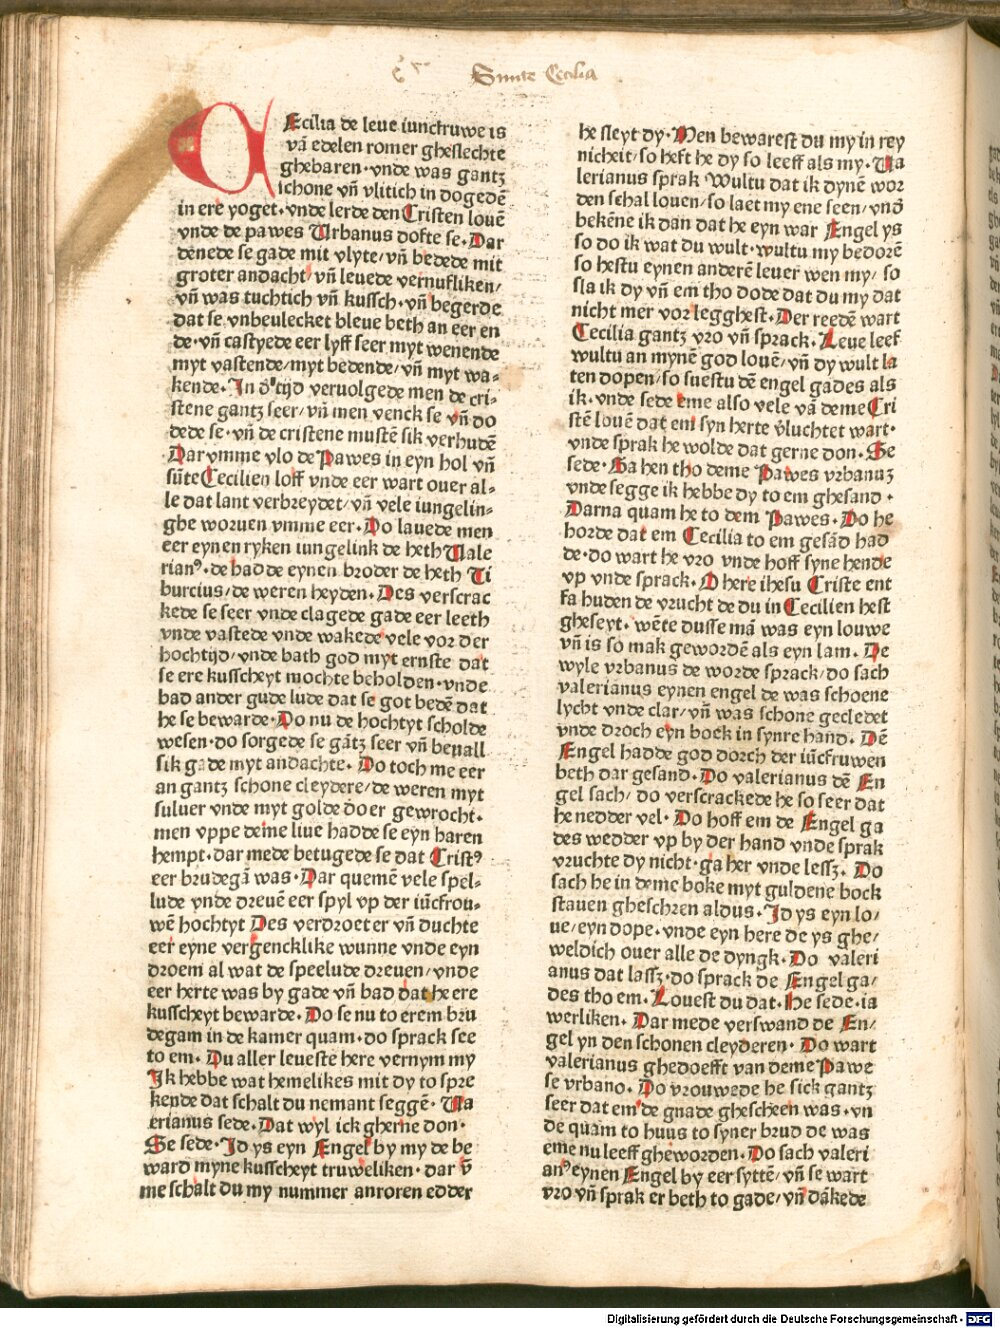 Sunte Cecilia
CEcilia de leue iunctruwe is
vā edelen romer gheslechte
ghebaren · vnde was gantz
schone vn̄ vlitich in dogedē
in ere yoget · vnde lerde den Cristen louē
vnde de pawes Urbanus dofte se · Dar
dēnede se gade mit vlyte / vn̄ bedede mit
groter andacht / vn̄ leuede vernufliken /
vn̄ was tuchtich vn̄ kussch · vn̄ begerde
dat se vnbeulecket bleue beth an eer en
de · vn̄ castyede eer lyff seer myt wenende
myt vastende / myt bedende / vn̄ myt wa⸗
kende · In d' tijd veruolgede men de cri⸗
stene gantz seer / vn̄ men venck se vn̄ do
dede se · vn̄ de cristene mustē sik verhudē
Dar vmme vlo de Pawes in eyn hol vn̄
sūte Cecilien loff vnde eer wart ouer al⸗
le dat lant verbreydet / vn̄ vele iungelin⸗
ghe woruen vmme eer · Do lauede men
eer eynen ryken iungelink de heth Uale
rianꝰ · de hadde eynen broder de heth Ti
burcius / de weren heyden · Des verscrac
kede se seer vnde clagede gade eer leeth
vnde vastede vnde wakede vele vor der
hochtijd / vnde bath god myt ernste dat
se ere kusscheyt mochte beholden · vnde
bad ander gude lude dat se got bedē dat
he se bewarde · Do nu de hochtyt scholde
wesen · do sorgede se gātz seer vn̄ beuall
sik gade myt andachte · Do toch me eer
an gantz schone cleydere / de weren myt
suluer vnde myt golde doer gewrocht ·
men vppe deme liue hadde se eyn haren
hempt · dar mede betugede se dat Cristꝰ
eer brudegā was · Dar quemē vele spel⸗
lude vnde dreuē eer spyl vp der iūcfrou⸗
wē hochtyt Des verdroet er vn̄ duchte
eer eyne vergencklike wunne vnde eyn
droem al wat de speelude dreuen / vnde
eer herte was by gade vn̄ bad dat he ere
kusscheyt bewarde · Do se nu to erem bru
degam in de kamer quam · do sprack see
to em · Du aller leueste here vernym my
Ik hebbe wat hemelikes mit dy to spre
kende dat schalt du nemant seggē · Ua
lerianus sede · Dat wyl ick gherne don ·
Se sede · Id ys eyn Engel by my de be
ward myne kusscheyt truweliken · dar v̄
me schalt du my nummer anroren edder
he sleyt dy · Men bewarest du my in rey
nicheit / so heft he dy so leeff als my · Ua
lerianus sprak Wultu dat ik dynē wor
den schal louen / so laet my ene seen / vnd
bekēne ik dan dat he eyn war Engel ys
so do ik wat du wult · wultu my bedorē
so hestu eynen anderē leuer wen my / so
sla ik dy vn̄ em tho dode dat du my dat
nicht mer vor legghest · Der reedē wart
Cecilia gantz vro vn̄ sprack · Leue leef
wultu an mynē god louē / vn̄ dy wult la
ten dopen / so suestu dē engel gades als
ik · vnde sede eme also vele vā deme Cri
stē louē dat em syn herte v̄luchtet wart ·
vnde sprak he wolde dat gerne don · Se
sede · Ga hen tho deme Pawes vrbanuz
vnde segge ik hebbe dy to em ghesand ·
Darna quam he to dem Pawes · Do he
horde dat em Cecilia to em gesād had
de · do wart he vro vnde hoff syne hende
vp vnde sprack · O here ihesu Criste ent
fa huden de vrucht de du in Cecilien hest
gheseyt · wēte dusse mā was eyn louwe
vn̄ is so mak gewordē als eyn lam · De
wyle vrbanus de worde sprack / do sach
valerianus eynen engel de was schoene
lycht vnde clar / vn̄ was schone gecledet
vnde droch eyn bock in synre hand · Dē
Engel hadde god dorch der iūcfruwen
beth dar gesand · Do valerianus dē En
gel sach / do verscrackede he so seer dat
he nedder vel · Do hoff em de Engel ga
des wedder vp by der hand vnde sprak
vruchte dy nicht · ga her vnde lessz · Do
sach he in deme boke myt guldene bock
stauen gheschren aldus · Id ys eyn lo/
ue / eyn dope · vnde eyn here de ys ghe/
weldich ouer alle de dyngk · Do valeri
anus dat lassz · do sprack de Engel ga/
des tho em · Louest du dat · He sede · ia
werliken · Dar mede verswand de En/
gel yn den schonen cleyderen · Do wart
valerianus ghedoefft van deme Pawe
se vrbano · Do vrouwede he sick gantz
seer dat em de gnade ghescheen was · vn
de quam to huus to syner brud de was
eme nu leeff gheworden · Do sach valeri
anꝰ eynen Engel by eer syttē / vn̄ se wart
vro vn̄ sprak er beth to gade / vn̄ dākede
Digitalisierung gefördert durch die Deutsche Forschungsgemeinschaft - DFG